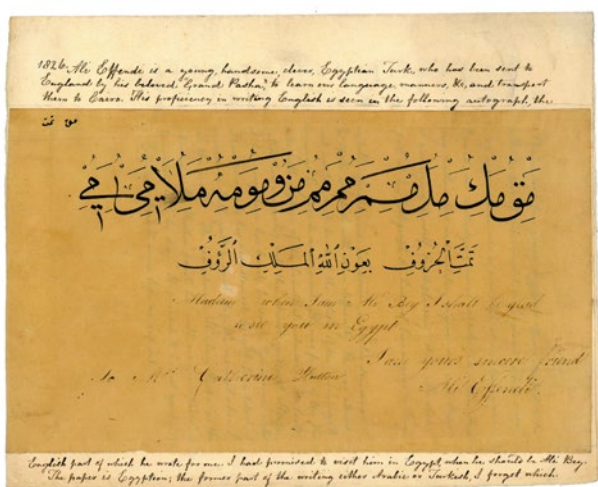 1826. Ali Effendi is a young, handsome, clever, Egyptian Turk, who has been sent to
England by his beloved "Grand Pasha," to learn our language, manners, &c, and transport
them to Cairo. His proficiency in writing English is seen in the following autograph, the
مق مك مل
تمت الحروف بعون الله الملك الرؤف
Madam when I am Ali Bey I shall be glad
to see you in Egypt
I am yours sincere friend
To Mrs Catherine Hutton
Ali Effendi.
English part of which he wrote for me. I had promised to visit him in Egypt, when he should be Ali Bey.
The paper is Egyptian; the former part of the writing either Arabic or Turkish, I forget which.